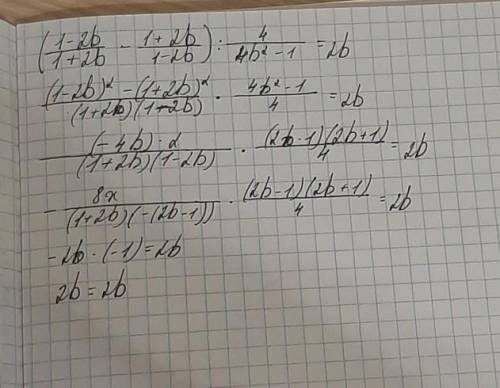 ((1-2b)/(1+2b) - (1+2b)/(1-2b)) : 4/(4b²-1) = 2b
((1-2b)² - (1+2b)²)/((1+2b)(1-2b)) · (4b²-1)/4 = 2b
((-4b)·2)/((1+2b)(1-2b)) · ((2b-1)(2b+1))/4 = 2b
- 8x/((1+2b)(-(2b-1))) · ((2b-1)(2b+1))/4 = 2b
-2b · (-1) = 2b
2b = 2b